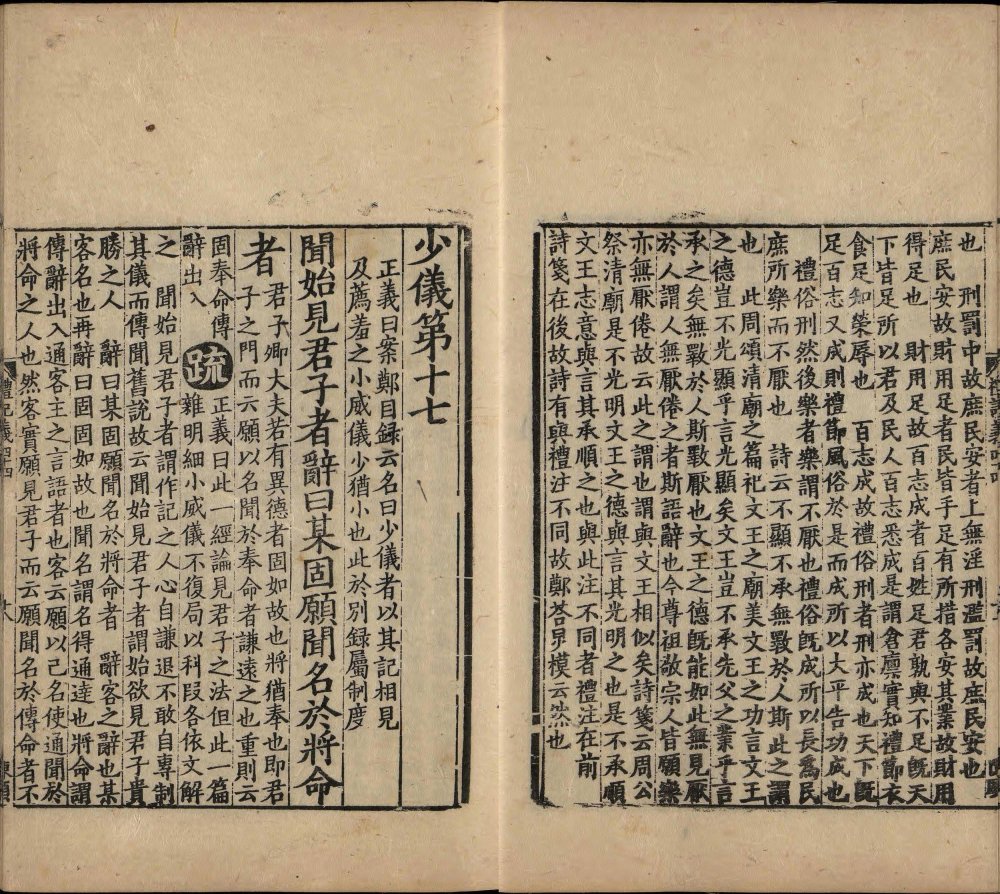 也　刑罰中故庶民安者上無淫刑濫罰故庶民安也
庶民安故財用足者民皆手足有所措各安其業故財用
得足也　財用足故百志成者百姓足君孰與不足旣天
下皆足所以君及民人百志悉成是謂倉廩實知禮節衣
食足知榮辱也　百志成故禮俗刑者刑亦成也天下旣
足百志又成則禮節風俗於是而成所以大平告功成也
禮俗刑然後樂者樂謂不厭也禮俗旣成所以長爲民
庶所樂而不厭也　詩云不顯不承無斁於人斯此之謂
也　此周頌清廟之篇祀文王之廟美文王之功言文王
之德豈不光顯乎言光顯矣文王豈不承先父之業乎言
承之矣無斁於人斯斁厭也文王之德旣能如此無見厭
於人謂人無厭倦之者斯語辭也今尊祖敬宗人皆願樂
亦無厭倦故云此之謂也謂與文王相似矣詩箋云周公
祭清廟是不光明文王之德與言其光明之也是不承順
文王志意與言其承順之也與此注不同者禮注在前
詩箋在後故詩有與禮注不同故鄭荅炅模云然也
少儀第十七
正義曰案鄭目録云名曰少儀者以其記相見
及薦羞之小威儀少猶小也此於別録屬制度
聞始見君子者辭曰某固願聞名於將命
者　君子卿大夫若有異德者固如故也將猶奉也即君
子之門而云願以名聞於奉命者謙遠之也重則云
固奉命傳
辭出入　疏　正義曰此一經論見君子之法但此一篇
雜明細小威儀不復局以科段各依文解
之　聞始見君子者謂作記之人心自謙退不敢自專制
其儀而傳聞舊説故云聞始見君子者謂始欲見君子貴
勝之人　辭曰某固願聞名於將命者　辭客之辭也某
客名也再辭曰固固如故也聞名謂名得通達也將命謂
傳辭出入通客主之言語者也客云願以己名使通聞於
將命之人也然客實願見君子而云願聞名於傳命者不